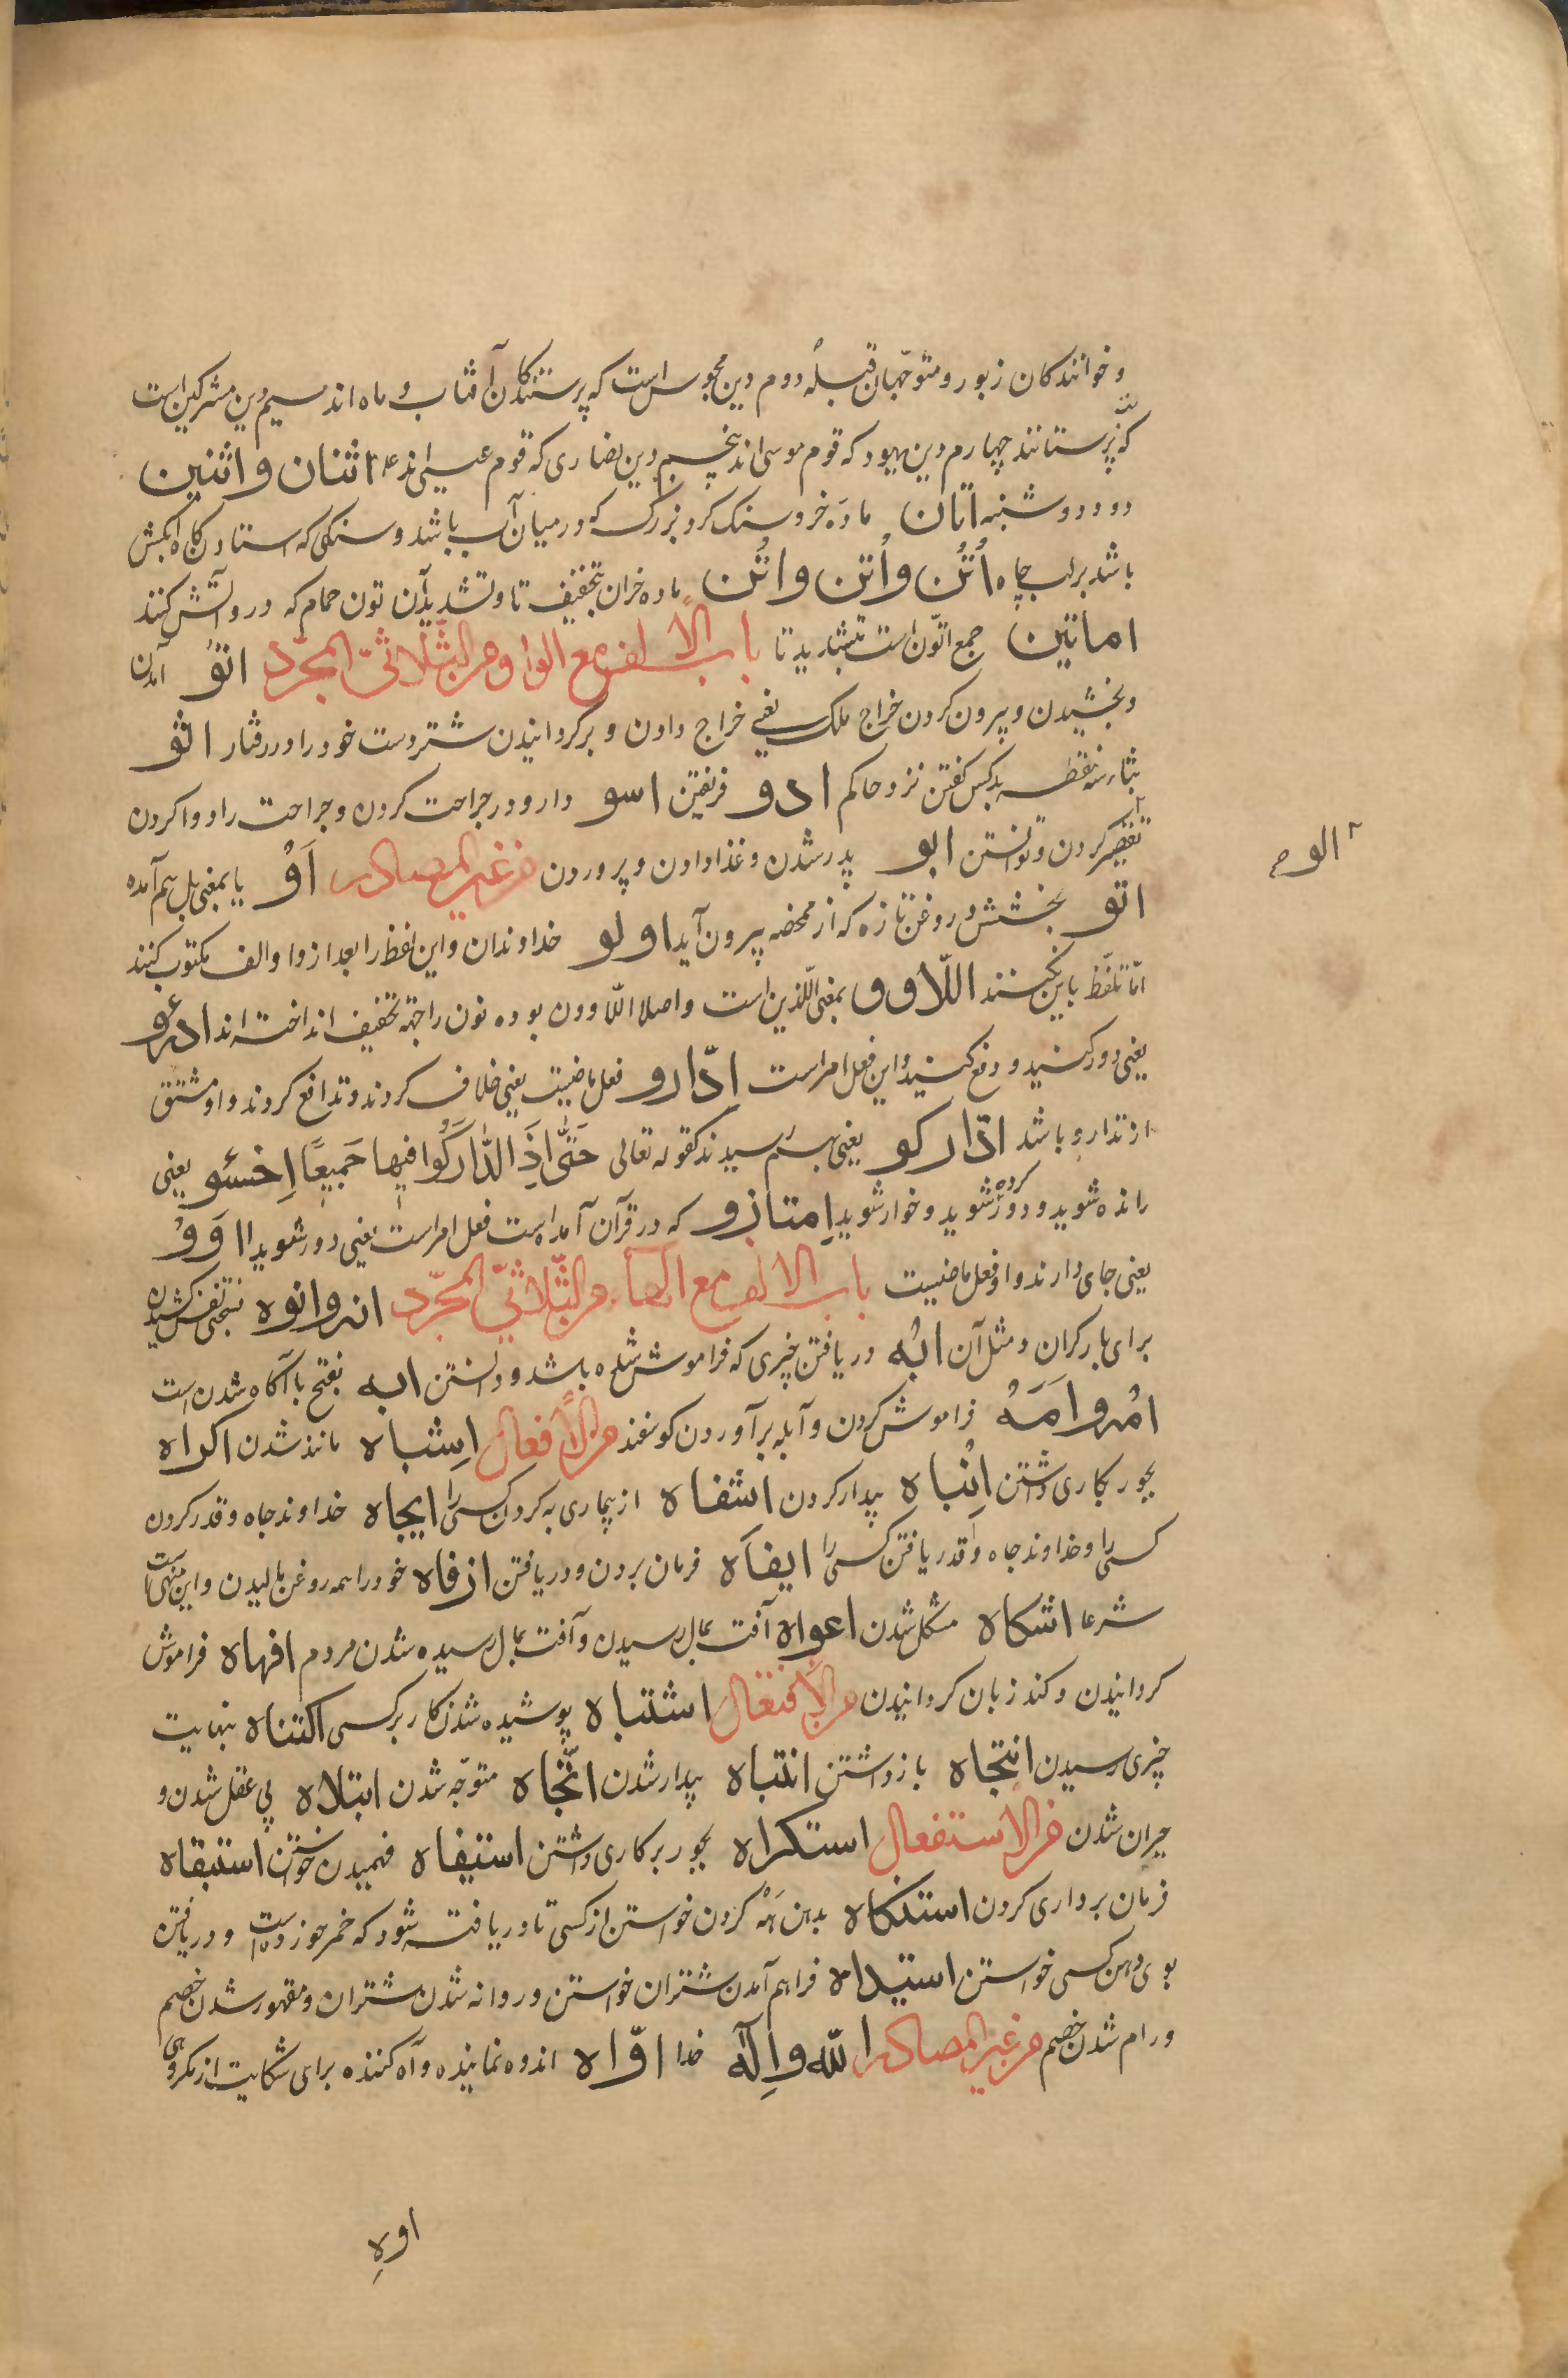 و خوانندکان زبور و متوجّهان قبله دوم دین مجوس است که پرستندکان آفتاب و ماه اند سیم دین مشرکین است
که بت پرستانند چهارم دین یهود که قوم موسی اند پنجم دین نصاری که قوم عیسی اند اثنان و اثنین
دو و دوشنبه اتان ماده خر و سنک کرد بزرک که در میان آب باشد و سنکی که استادن کاه آبکش
باشد بر لب چاه اُتُن و اُتن و اتُن ماده خران بتخفیف تا و تشدید آن تون حمام که درو آتش کنند
اماتین جمع اتّون است بتشدید تا باب الالف مع الواو من الثّلاثیّ المجرّد اتوُ آمدن
و بخشیدن و بیرون کردن خراج ملک یعنی خراج دادن و برکردانیدن شتر دست خود را در رفتار اثو
بثاء سه نقطه بد کس کفتن نزد حاکم ادو فریفتن اسو دارو در جراحت کردن و جراحت را دوا کردن
الو
تقصیر کردن و توانستن ابو پدر شدن و غذا دادن و پروردن من غیر المصادر اَوْ یا بمعنی بل هم آمده
اتو بخشش و روغن تازه که از مخضه بیرون آید اولو خداوندان و این لفظ را بعد از واو الف مکتوب کنند
امّا تلفّظ باین نکنند اللّاوو بمعنی اللّذین است و اصل اللّاوون بوده نون را جهة تخفیف انداخته اند ادرءو
یعنی دور کنید و دفع کنید و این فعل امر است اِدّارو فعل ماضیست یعنی خلاف کردند و تدافع کردند و او مشتق
از تدارو باشد ادّارکو یعنی بهم رسیدند کقوله تعالی حَتّٰی اِذَا ادّٰارَکُوا فیها جَمیعًا اِخسئو یعنی
رانده شوید و دور کرده شوید و خوار شوید اِمتازو که در قرآن آمده است فعل امر است یعنی دور شوید ااوَوْ
یعنی جای دارند و او فعل ماضیست باب الالف مع الهاء من الثّلاثیّ المجرّد انه و انوه بسختی نفس کشیدن
برای بار کران و مثل آن ابُه دریافتن چیزی که فراموش شده باشد و دانستن ابه بفتح با آکاه شدن است
امُه و اَمَهُ فراموش کردن و آبله برآوردن کوسفند من الافعال اِشباه مانند شدن اکراه
بجور بکاری داشتن اِنْباه بیدار کردن اشفاه از بیماری به کردن کسی را ایجاه خداوند جاه و قدر کردن
کسی را و خداوند جاه و قدر یافتن کسی را ایفاه فرمان بردن و دریافتن ازفاه خود را همه روغن مالیدن و این منهیست
شرعا اشکاه مشکل شدن اعواه آفت بمال رسیدن و آفت بمال رسیده شدن مردم افهاه فراموش
کردانیدن و کند زبان کردانیدن من الافتعال اشتباه پوشیده شدن کار بر کسی اکتناه بنهایت
چیزی رسیدن انتجاه باز داشتن انتباه بیدار شدن اتّجاه متوجّه شدن ابتلاه بی عقل شدن و
حیران شدن من الاستفعال استکراه بجور بر کاری داشتن استیفاه فهمیدن خواستن استیقاه
فرمان برداری کردن استنکاه بدهن هَهْ کردن خواستن از کسی تا دریافته شود که خمر خورده است و دریافتن
بوی دهن کسی خواستن استیداه فراهم آمدن شتران خواستن و روانه شدن شتران و مقهور شدن خصم
و رام شدن خصم من غیر المصادر اللّه و اِلٰه خدا اوّاه اندوه نماینده و آه کننده برای شکایت از مکروهی
اوهِ